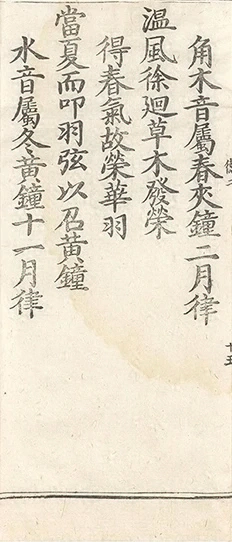 角木音屬春夾鐘二月律
溫風徐迴草木發榮
得春氣故榮華羽
當夏而叩羽弦以召黃鐘
水音屬冬黃鐘十一月律